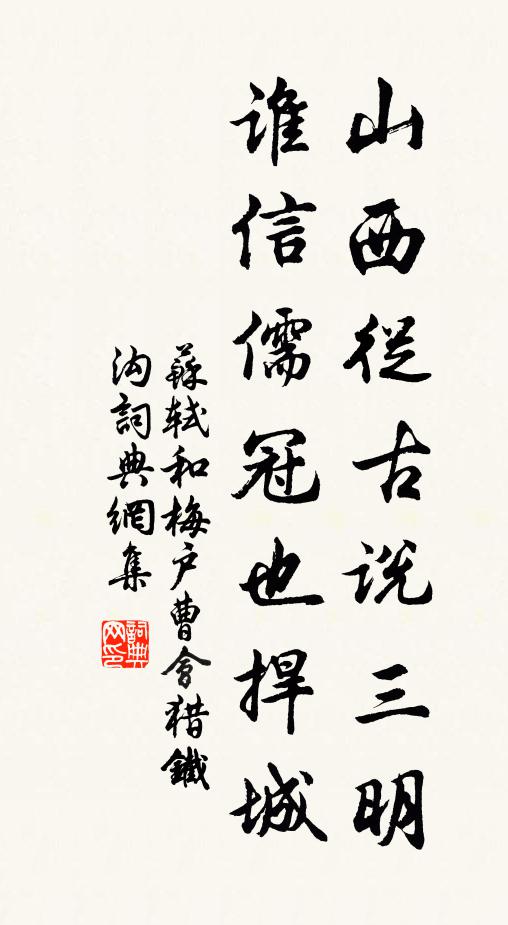 山西從古説三明
誰信儒冠也捍城
蘇軾和梅户曹會獵鐵
沟詞典網集
詞典
网印